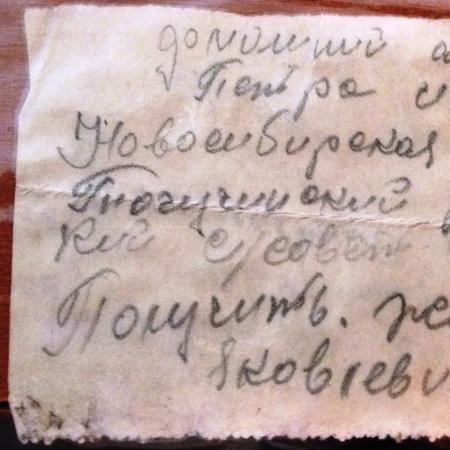 домашний а
Петра и
Новосибирская
Тогучинский
кий с/совет
Получить. же
Яковлеви